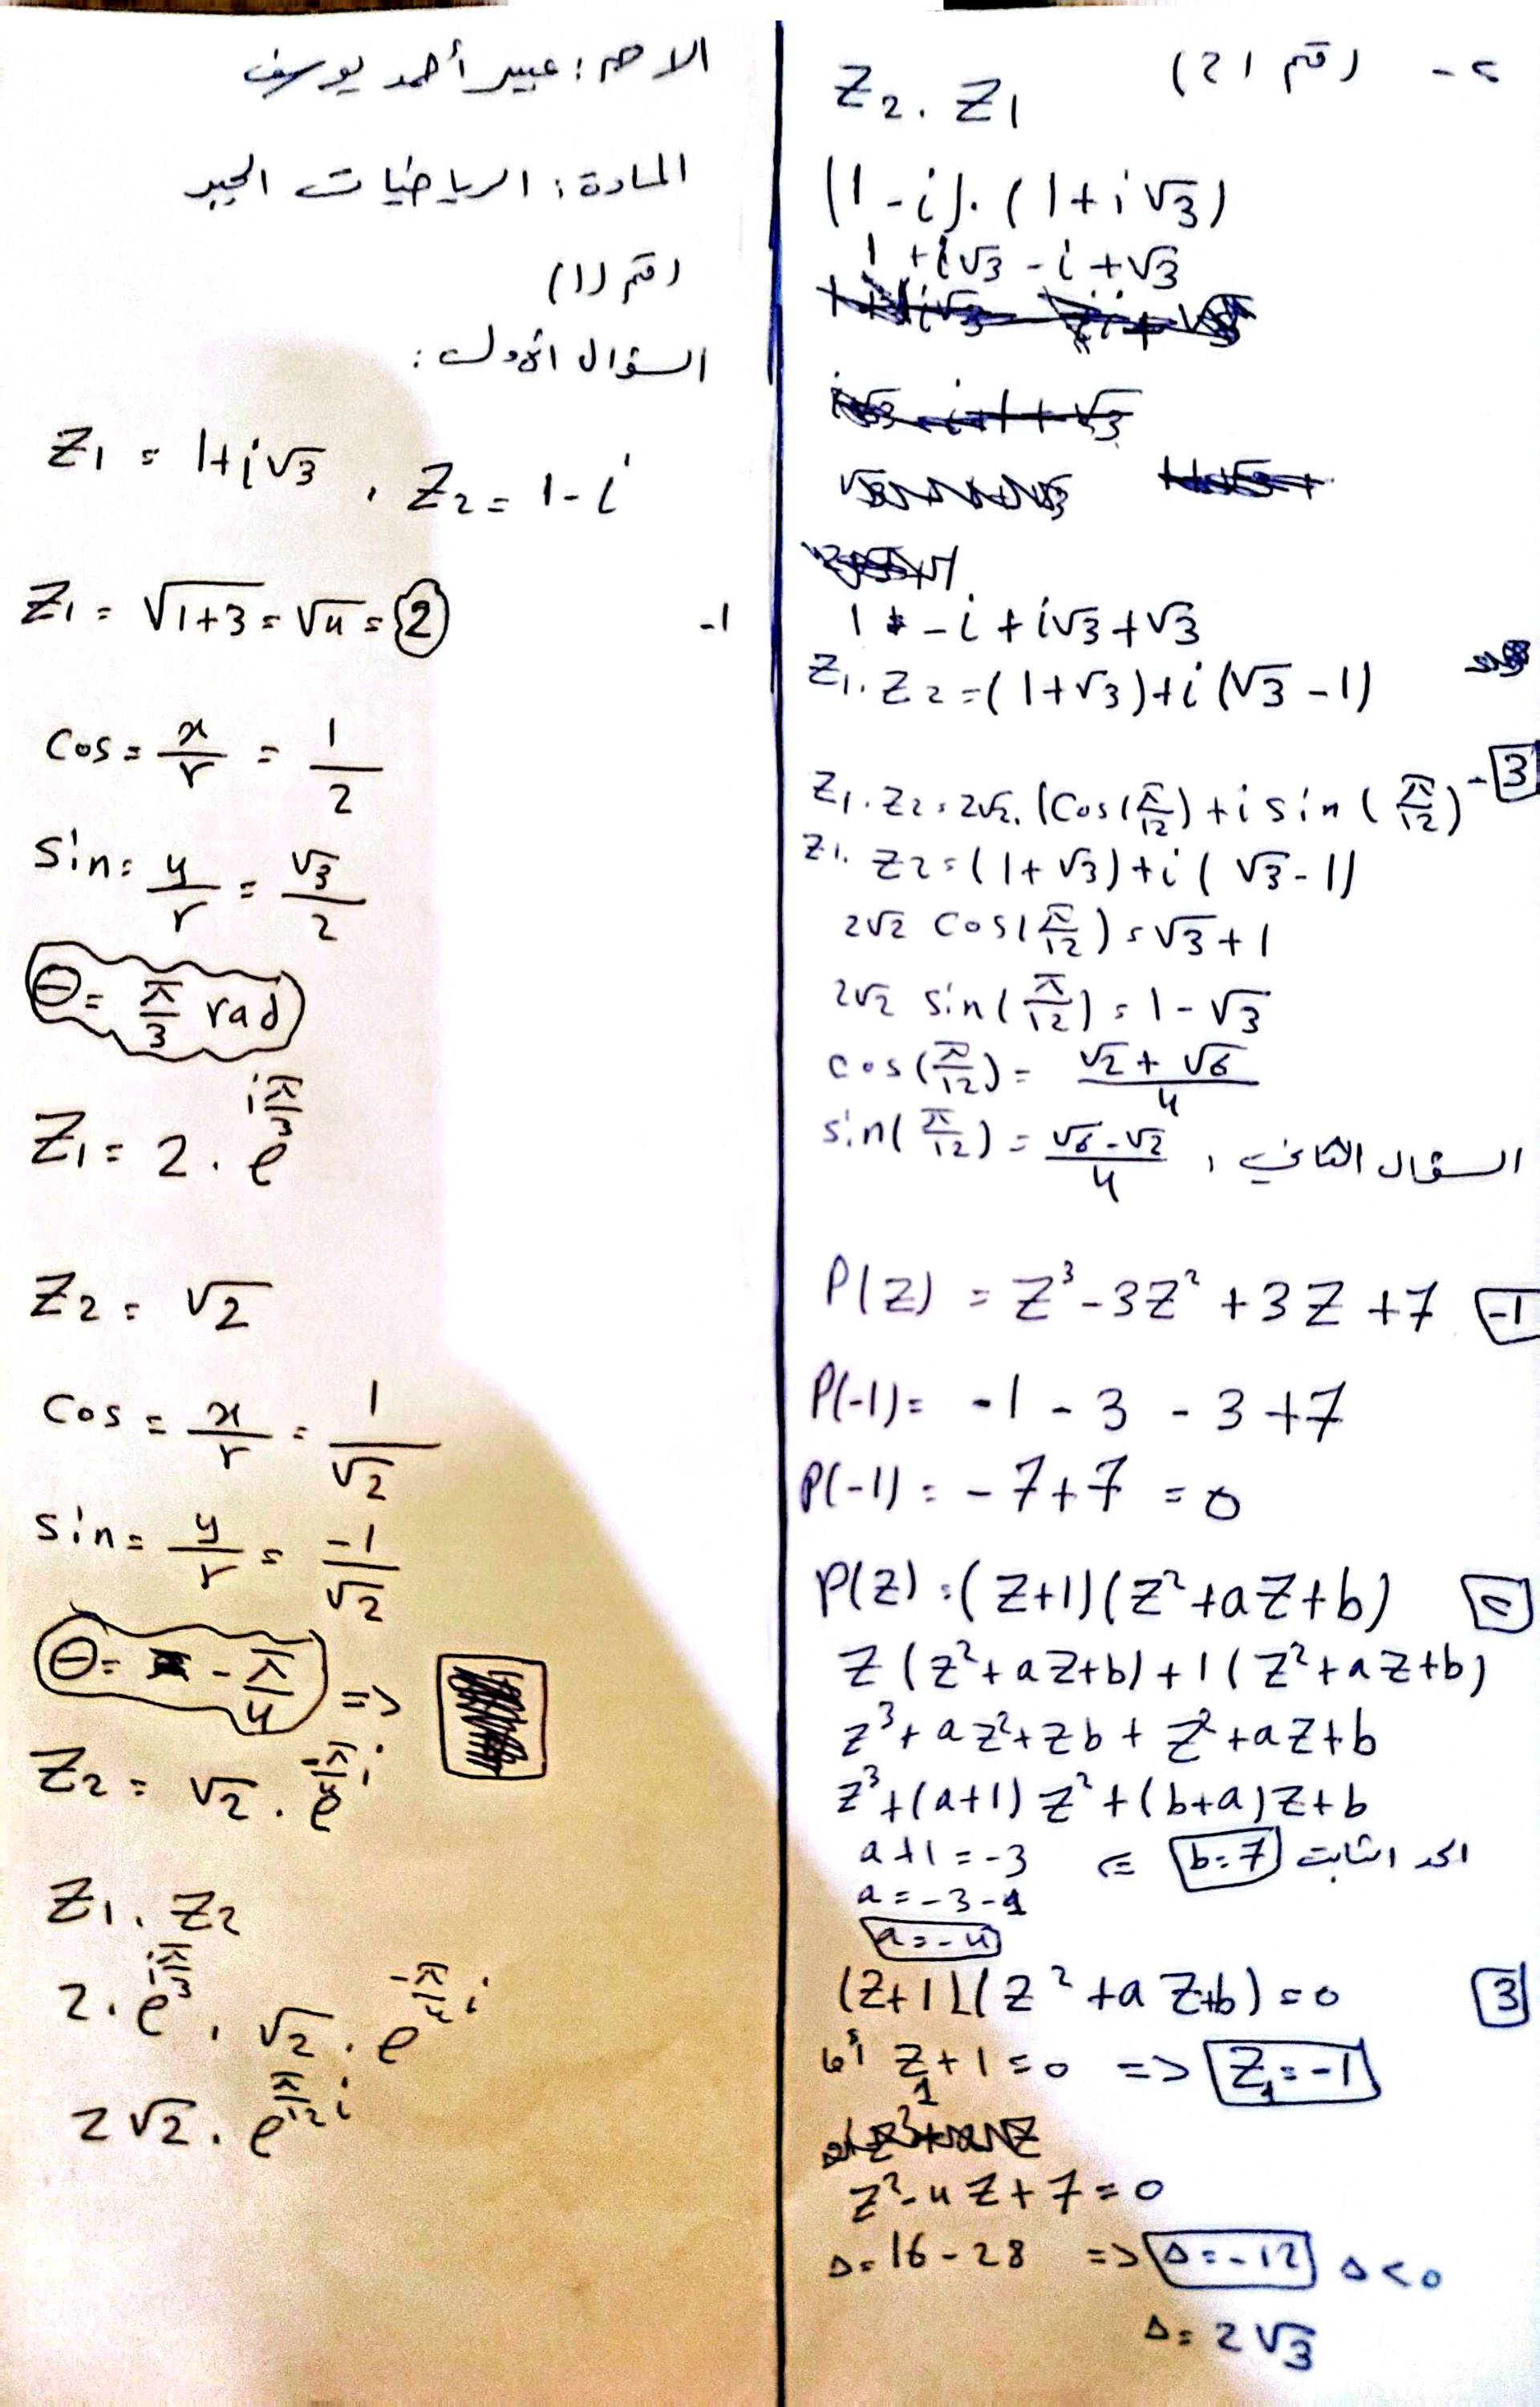 الاسم : عبير أحمد يوسف
المادة : الرياضيات الجبر
رقم (1)
السؤال الأول :
Z1 = 1+i√3 , Z2 = 1-i
Z1 = √1+3 = √4 = 2 -1
cos = x/r = 1/2
sin = y/r = √3/2
θ = π/3 rad
Z1 = 2 . e^iπ/3
Z2 = √2
cos = x/r = 1/√2
sin = y/r = -1/√2
θ = -π/4 =>
Z2 = √2 . e^-π/4 i
Z1 . Z2
2 . e^iπ/3 . √2 . e^-π/4 i
2√2 . e^π/12 i
رقم (2) ٢-
Z2 . Z1
(1-i).(1+i√3)
1 +i√3 -i +√3
1 -i + i√3 +√3
Z1.Z2 = (1+√3)+i(√3-1)
Z1.Z2 = 2√2.(cos(π/12)+i sin(π/12) -3
Z1. Z2 = (1+√3)+i(√3-1)
2√2 cos(π/12) = √3+1
2√2 sin(π/12) = 1-√3
cos(π/12) = √2+√6/4
sin(π/12) = √6-√2/4
السؤال الثاني ,
P(Z) = Z³-3Z²+3Z+7 -1
P(-1) = -1 -3 -3+7
P(-1) = -7+7 = 0
P(Z) = (Z+1)(Z²+aZ+b) ٢
Z(Z²+aZ+b)+1(Z²+aZ+b)
Z³+aZ²+Zb+Z²+aZ+b
Z³+(a+1)Z²+(b+a)Z+b
a+1=-3 <= b=7 الحد الثابت
a=-3-1
a=-4
(Z+1)(Z²+aZ+b)=0 3
أما Z1+1=0 => Z1=-1
Z²-4Z+7=0
Δ=16-28 => Δ=-12 Δ<0
Δ=2√3